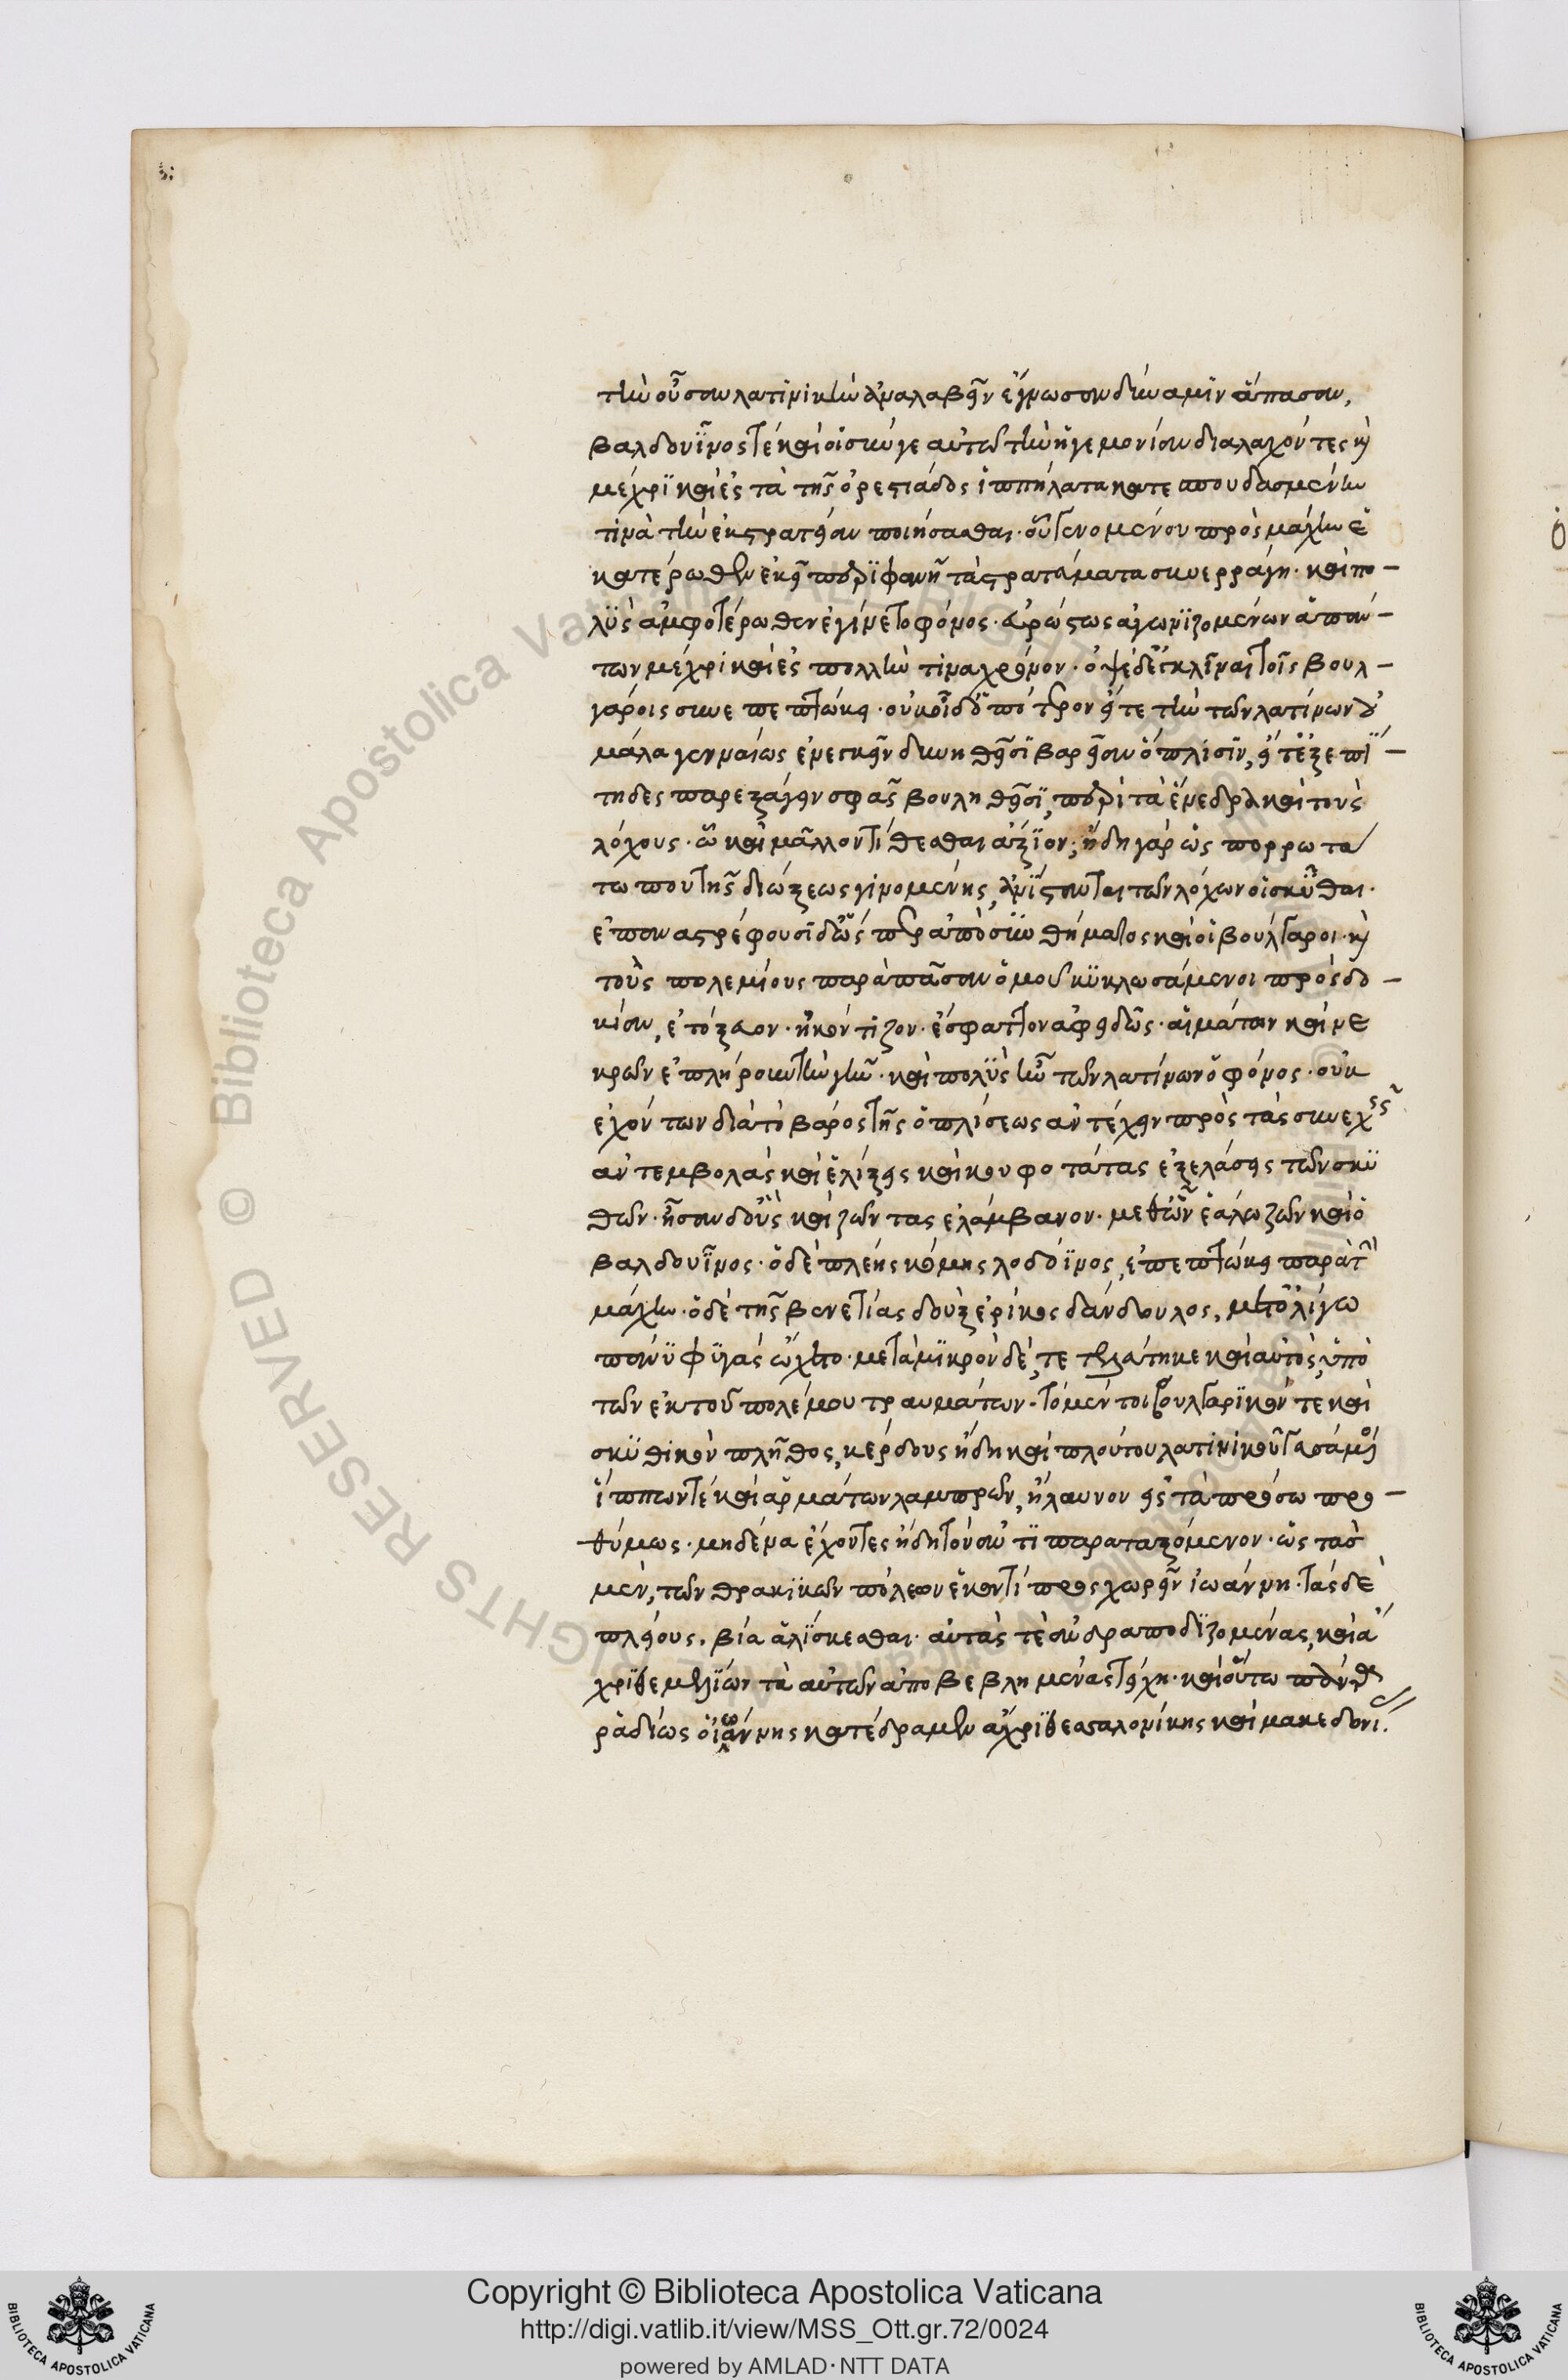 τὴν οὖσαν λατινικὴν ἀναλαβεῖν ἔγνωσαν δύναμιν ἅπασαν,
βαλδουῖνος τὲ καὶ οἱ σύν γε αὐτῶ τὴν ἡγεμονίαν διαλαχόντες καὶ
μέχρι καὶ ἐς τὰ τῆς ὀρεστιάδος ἱππήλατα κατεσπουδασμένην
τινὰ τὴν ἐκστρατείαν ποιήσασθαι. οὗ γενομένου πρὸς μάχην ἑ
κατέρωθεν ἐκεῖ περιφανῆ τὰ στρατεύματα συνερράγη. καὶ πο-
λὺς ἀμφοτέρωθεν ἐγίνετο φόνος. εὐρώστως ἀγωνιζομένων ἁπάν-
των μέχρι καὶ ἐς πολλὴν τινα χρόνον. ὀψὲ δὲ ἐγκλῖναι τοῖς βουλ-
γάροις συνεπεπτώκει. οὐκ οἶδ' ὁπότερον εἴτε τὴν τῶν λατίνων εὖ
μάλα γενναίως ἐνεγκεῖν δυνηθεῖσι βαρεῖαν ὅπλισιν, εἴτε ἐξεπί-
τηδες παρεξάγειν σφᾶς βουληθεῖσι, περὶ τὰ ἔνεδρα καὶ τοὺς
λόχους. ὧ καὶ μᾶλλον τίθεσθαι ἄξιον; ἤδη γὰρ ὡς πορρωτά
τω που τῆς διώξεως γινομένης, ἀνίστανται τῶν λόχων οἱ σκύθαι.
ἐπαναστρέφουσι δ' ὥσπερ ἀπὸ συνθήματος καὶ οἱ βούλγαροι. καὶ
τοὺς πολεμίους παρὰ πᾶσαν ὁμοῦ κυκλωσάμενοι προσδο-
κίαν, ἐτόξευον. ἠκόντιζον. ἔσφαττον ἀφειδῶς. αἱμάτων καὶ νε
κρῶν ἐπλήρουν τὴν γῆν. καὶ πολὺς ἦν τῶν λατίνων ὁ φόνος. οὐκ
ἐχόντων διὰ τὸ βάρος τῆς ὁπλίσεως ἀντέχειν πρὸς τὰς συνεχεῖς
ἀντεμβολὰς καὶ ἑλίξεις καὶ κουφοτάτας ἐξελάσεις τῶν σκυ
θῶν. ἦσαν δ' οὓς καὶ ζῶντας ἐλάμβανον. μεθ' ὧν ἑάλω ζῶν καὶ ὁ
βαλδουῖνος. ὁ δὲ πλέης κόμης λοδόϊνος, ἐπεπτώκει παρὰ τὴν
μάχην. ὁ δὲ τῆς βενετίας δοὺξ ἐρίκος δάνδουλος, μετ' ὀλίγω
πάνυ φυγὰς ὤχετο. μετὰ μικρὸν δὲ, τετελεύτηκε καὶ αὐτὸς, ὑπὸ
τῶν ἐκ τοῦ πολέμου τραυμάτων. τὸ μέντοι βουλγαρικόν τε καὶ
σκυθικὸν πλῆθος, κέρδους ἤδη καὶ πλούτου λατινικοῦ γευσάμενοι
ἵππων τὲ καὶ ἁρμάτων λαμπρῶν, ἤλαυνον εἰς τὰ πρόσω προ-
θύμως. μηδένα ἔχοντες ἤδη τὸν ἀντιπαραταξόμενον. ὡς τὰς
μὲν, τῶν θρακικῶν πόλεων ἑκοντὶ προσχωρεῖν ἰωάννη. τὰς δὲ
πλείους, βία ἁλίσκεσθαι. αὐτάς τε ἀνδραποδιζομένας, καὶ ἄ
χρι θεμελίων τὰ αὐτῶν ἀποβεβλημένας τείχη. καὶ οὕτω πάνυ
ῥαδίως ὁ ἰωάννης κατέδραμεν ἄχρι θεσσαλονίκης καὶ μακεδονί.